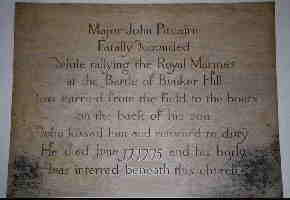 Major John Pitcairn
Fatally Wounded
While rallying the Royal Marines
at the Battle of Bunker Hill
was carried from the field to the boats
on the back of his son
who kissed him and returned to duty
He died June 17 1775 and his body
was interred beneath this church